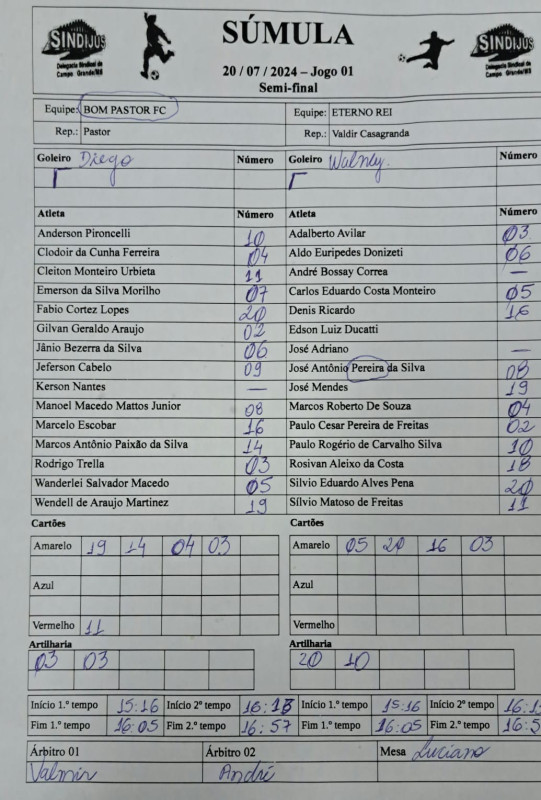 SINDIJUS SÚMULA SINDIJUS
Delegacia Sindical de Campo Grande/MS
Delegacia Sindical de Campo Grande/MS
20 / 07 / 2024 – Jogo 01
Semi-final
Equipe: BOM PASTOR FC Equipe: ETERNO REI
Rep.: Pastor Rep.: Valdir Casagranda
Goleiro Diego Número Goleiro Número
Atleta Número Atleta Número
Anderson Pironcelli 10 Adalberto Avilar 03
Clodoir da Cunha Ferreira 04 Aldo Euripedes Donizeti 06
Cleiton Monteiro Urbieta 11 André Bossay Correa —
Emerson da Silva Morilho 07 Carlos Eduardo Costa Monteiro 05
Fabio Cortez Lopes 20 Denis Ricardo 16
Gilvan Geraldo Araujo 02 Edson Luiz Ducatti
Jânio Bezerra da Silva 06 José Adriano —
Jeferson Cabelo 09 José Antônio Pereira da Silva 08
Kerson Nantes — José Mendes 19
Manoel Macedo Mattos Junior 08 Marcos Roberto De Souza 04
Marcelo Escobar 16 Paulo Cesar Pereira de Freitas 02
Marcos Antônio Paixão da Silva 14 Paulo Rogério de Carvalho Silva 10
Rodrigo Trella 03 Rosivan Aleixo da Costa 18
Wanderlei Salvador Macedo 05 Silvio Eduardo Alves Pena 20
Wendell de Araujo Martinez 19 Sílvio Matoso de Freitas 11
Cartões Cartões
Amarelo 19 14 04 03 Amarelo 05 20 16 03
Azul Azul
Vermelho 11 Vermelho
Artilharia Artilharia
03 03 20 10
Início 1.º tempo 15:16 Início 2º tempo 16:18 Início 1.º tempo 15:16 Início 2º tempo
Fim 1.º tempo 16:05 Fim 2.º tempo 16:57 Fim 1.º tempo 16:05 Fim 2.º tempo
Árbitro 01 Árbitro 02 Mesa Luciano
Valmir André